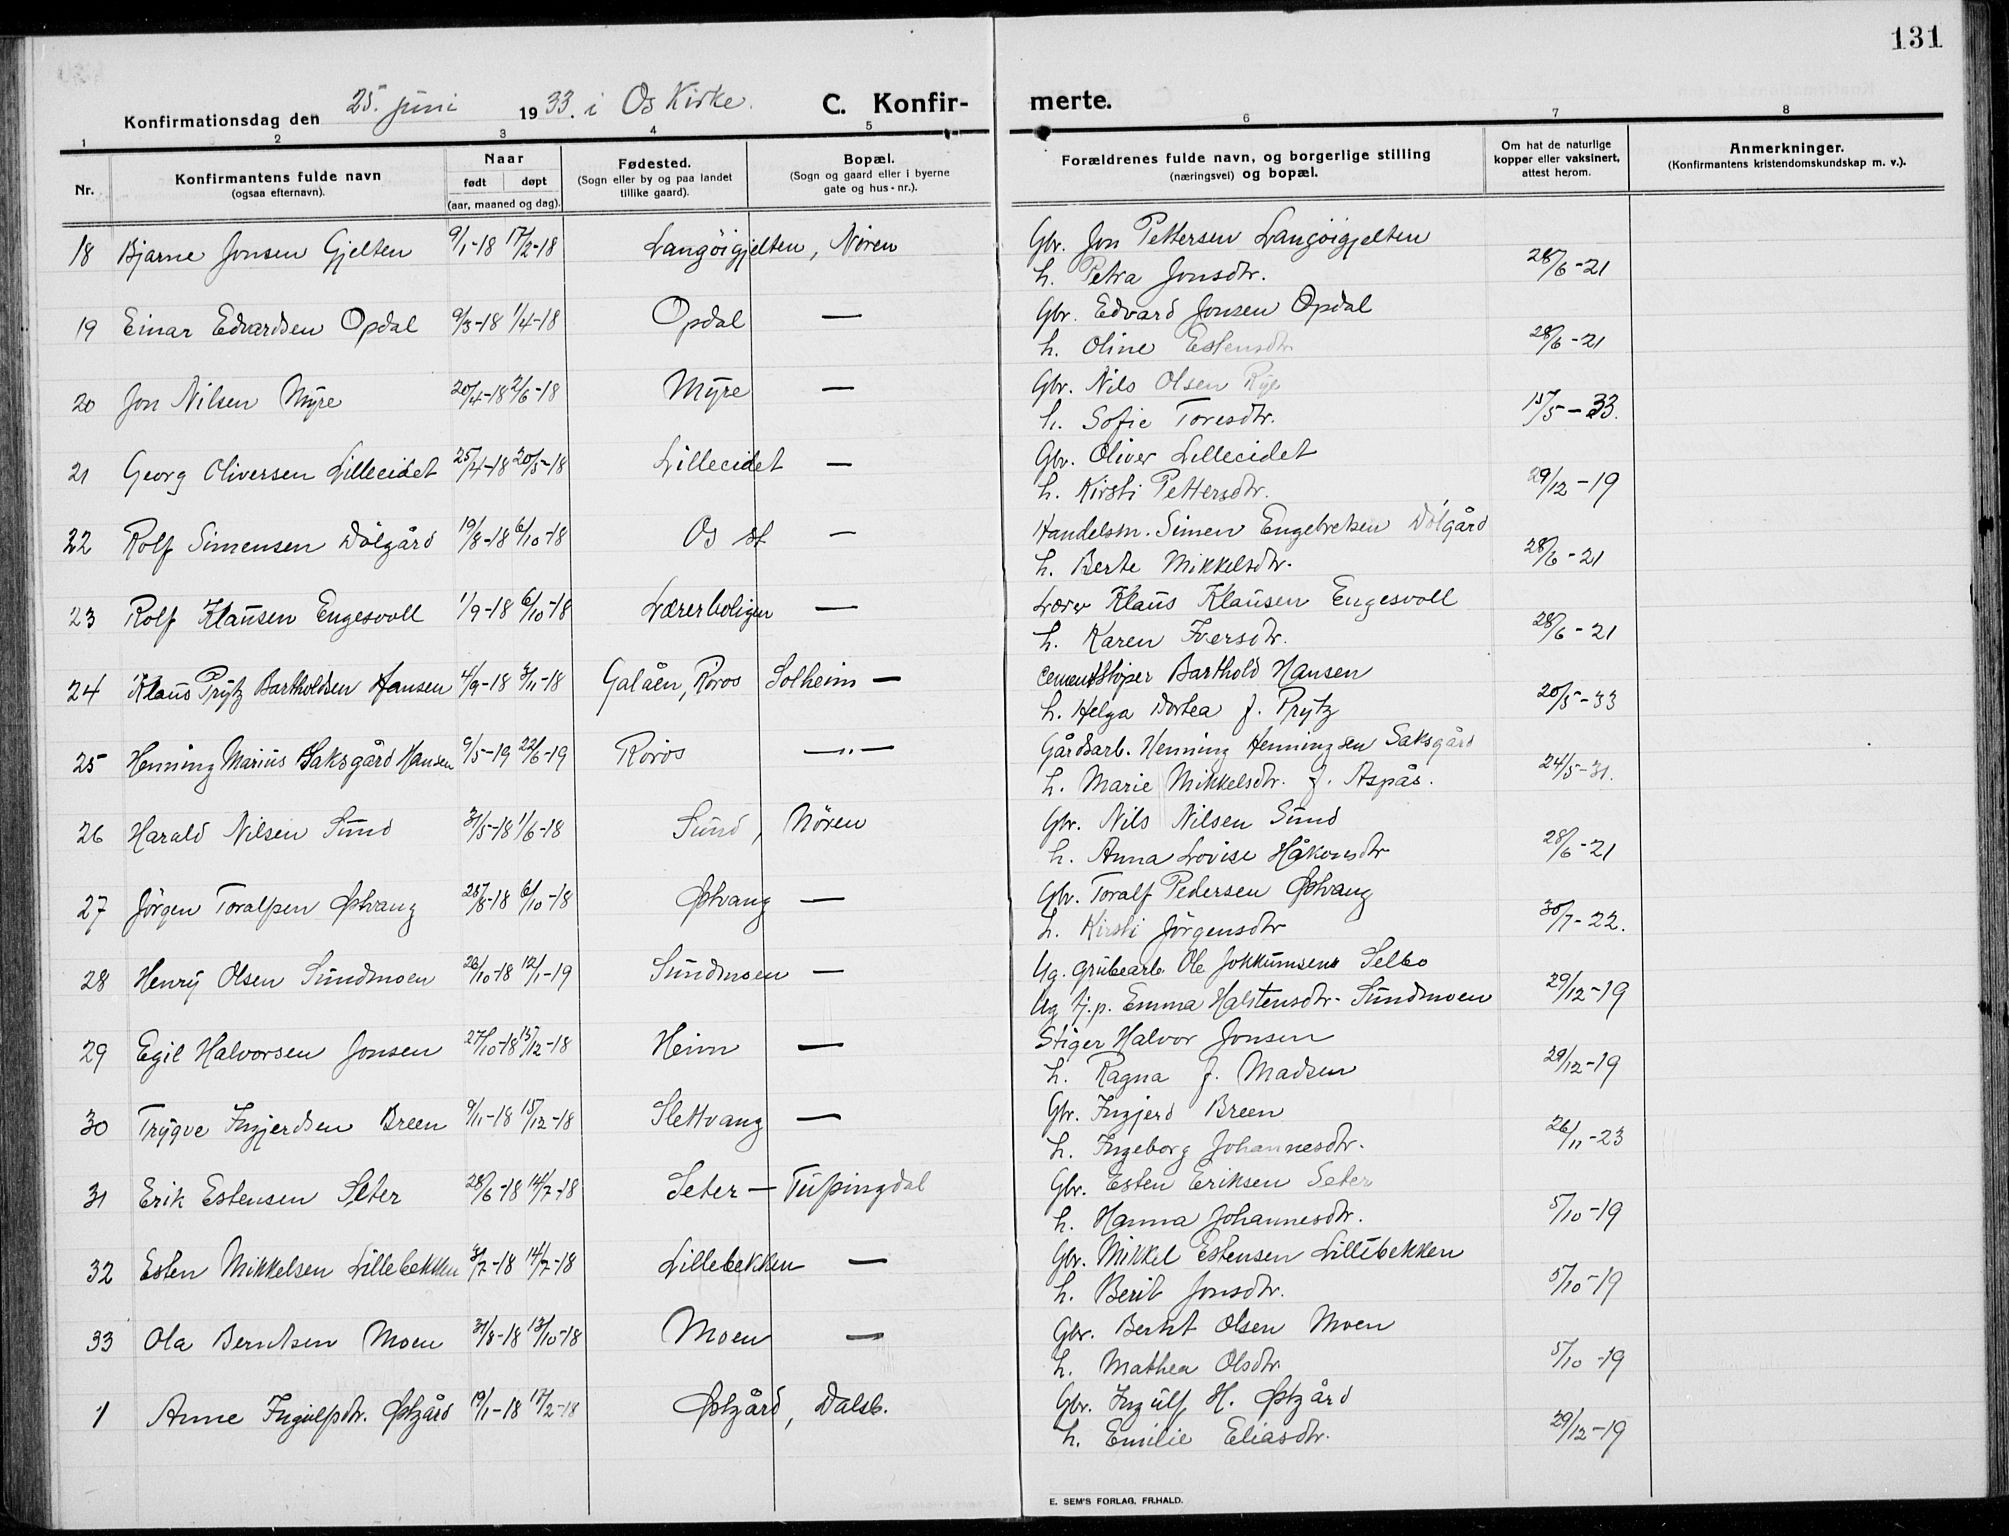 131
Konfirmationsdag den 25. juni 1933. i Os Kirke. C. Konfir- merte.
1 2 3 4 5 6 7 8
Nr.
Konfirmantens fulde navn
(ogsaa efternavn).
Naar
født døpt
(aar, maaned og dag).
Fødested.
(Sogn eller by og paa landet
tillike gaard).
Bopæl.
(Sogn og gaard eller i byerne
gate og hus-nr.).
Forældrenes fulde navn, og borgerlige stilling
(næringsvei) og bopæl.
Om hat de naturlige
kopper eller vaksinert,
attest herom.
Anmerkninger.
(Konfirmantens kristendomskundskap m. v.).
18 Bjarne Jonsen Gjelten 9/1-18 17/2-18 Langöigjelten, Nören Gbr. Jon Pettersen Langöigjelten
h. Petra Jonsdtr. 28/6-21
19 Einar Edvardsen Opdal 9/3-18 1/4-18 Opdal — Gbr. Edvard Jonsen Opdal
h. Oline Estensdtr. 28/6-21
20 Jon Nilsen Myre 20/4-18 2/6-18 Myre — Gbr. Nils Olsen
h. Sofie Toresdtr. 15/5-33.
21 Georg Oliversen Lilleeidet 25/4-18 20/5-18 Lilleeidet — Gbr. Oliver Lilleeidet
h. Kirsti Pettersdtr. 29/12-19
22 Rolf Simensen Dölgård 19/8-18 6/10-18 Os st. — Handelsm. Simen Engebretsen Dölgård
h. Berte Mikkelsdtr. 28/6-21
23 Rolf Klausen Engesvoll 1/9-18 6/10-18 Lærerboligen — Lærer Klaus Klausen Engesvoll
h. Karen Iversdtr. 28/6-21
24 Klaus Prytz Bartholdsen Hansen 4/9-18 3/11-18 Galåen, Röros Solheim — Cementstöper Barthold Hansen
h. Helga Dortea f. Prytz 20/5-33
25 Henning Marius Saksgård Hansen 9/5-19 22/6-19 Röros —"— Gårdsarb. Henning Henningsen Saksgård
h. Marie Mikkelsdtr. f. Aspås. 24/5-31.
26 Harald Nilsen Sund 31/5-18 1/6-18 Sund, Nören Gbr. Nils Nilsen Sund
h. Anna Lovise Håkonsdtr 28/6-21
27 Jörgen Toralfsen Østvang 25/8-18 6/10-18 Østvang — Gbr. Toralf Pedersen Østvang
h. Kirsti Jörgensdtr 30/7-22.
28 Henry Olsen Sundmoen 26/10-18 12/1-19 Sundmoen — Ug. grubearb. Ole Jokkumsen Selbo
Ug. tj.p. Emma Halstensdtr. Sundmoen 29/12-19
29 Egil Halvorsen Jonsen 27/10-18 15/12-18 Heim — Stiger Halvor Jonsen
h. Ragna f. Madsen 29/12-19
30 Trygve Ingjerdsen Breen 9/11-18 15/12-18 Slettvang — Gbr. Ingjerd Breen
h. Ingeborg Johannesdtr. 26/11-23
31 Erik Estensen Seter 28/6-18 14/7-18 Seter — Tufsingdal Gbr. Esten Eriksen Seter
h. Hanna Johannesdtr. 5/10-19
32 Esten Mikkelsen Lillebekken 3/7-18 14/7-18 Lillebekken — Gbr. Mikkel Estensen Lillebekken
h. Berit Jonsdtr. 5/10-19
33 Ola Berntsen Moen 31/8-18 13/10-18 Moen — Gbr. Bernt Olsen Moen
h. Mathea Olsdtr. 5/10-19
1 Anne Ingulfsdtr. Østgård 19/1-18 17/2-18 Østgård, Dalsb. Gbr. Ingulf H. Østgård
h. Emilie Eliasdtr. 29/12-19
E. SEM'S FORLAG, FR.HALD.